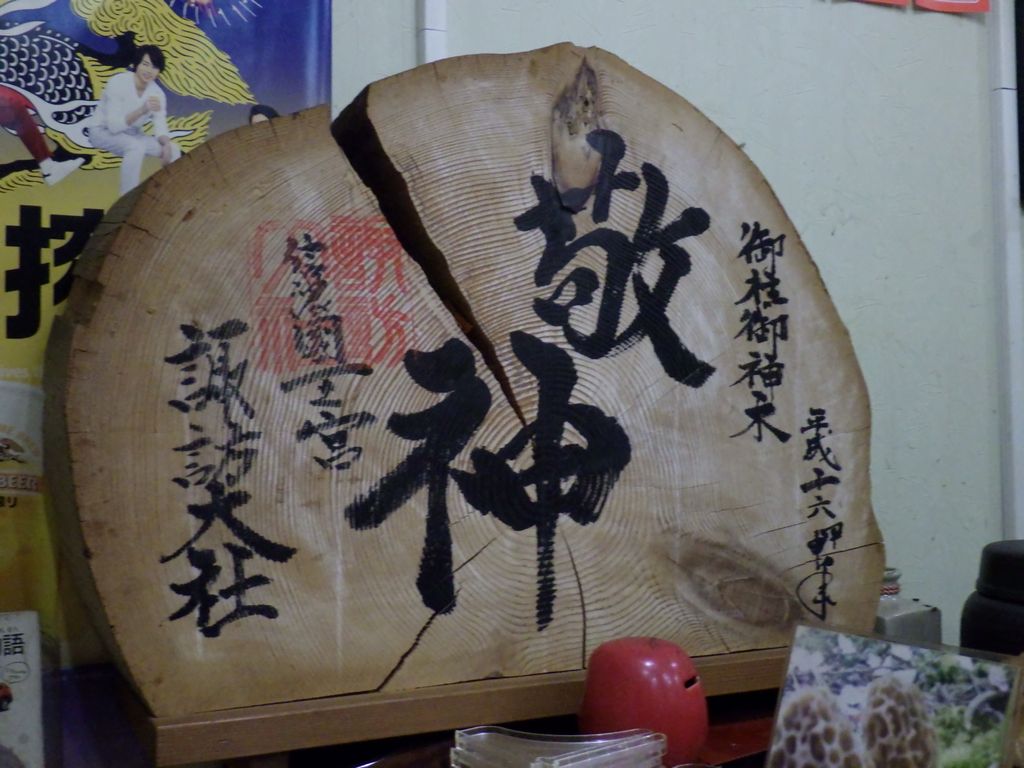 敬神
御柱御神木
平成十六甲申年
信濃國一之宮
諏訪大社
搾
BEER
語